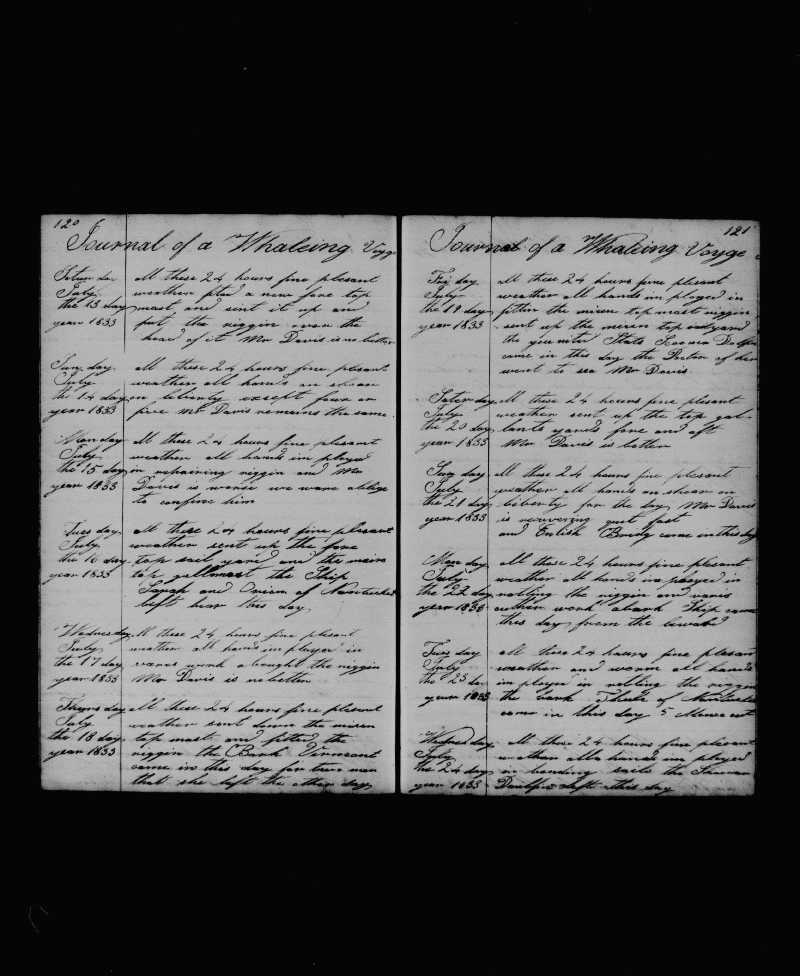 120
Journal of a Whaleing Voyge
Satur day All these 24 hours fine plesant
July weather fited a new fore top
the 13 day mast and sent it up and
year 1833 put the riggin over the
head of it Mr Davis is no better
Sun day all these 24 hours fine plesant
July weather all hands on shoar
the 14 day on liberty except four or
year 1833 five Mr Davis remains the same
Monday All these 24 hours fine plesant
July weather all hands im ployed
the 15 day in repairing riggin and Mr
year 1833 Davis is worse we ware oblige
to confine him
Tues day all these 24 hours fine plesant
July weather sent up the fore
the 16 day top sail yard and the main
year 1833 top gallmast the Ship
Sarah and of Nantucket
left hear this day
Wednesday All these 24 hours fine plesant
July weather all hands im ployed in
the 17 day work a bought the riggin
year 1833 Mr Davis is no better
Thurs day all these 24 hours fine plesant
July weather sent down the mizen
the 18 day top mast and fited the
year 1833 riggin the Bark Vermont
came in this day for two men
that she left the other day
121
Journal of a Whaleing Voyge
Fri day all these 24 hours fine plesant
July weather all hands im ployed in
the 19 day fitten the mizen top mast riggin
year 1833 sent up the mizen top sail yard
the State
came in this day the Docter of her
went to sea Mr Davis
Satur day All these 24 hours fine plesant
July weather sent up the top gal-
the 20 day lants yards fore and aft
year 1833 Mr Davis is better
Sun day All these 24 hours fine plesant
July weather all hands on shoar on
the 21 day liberty for the day Mr Davis
year 1833 is recuvering fast
and Enlish came in this day
Mon day All these 24 hours fine plesant
July weather all hands im ployed in
the 22 day ratling the riggin and
year 1833 work Ship came
this day from the
Tues day all these 24 hours fine plesant
July weather and warm all hands
the 23 day im ployed in ratling the riggin
year 1833 the bark of Nantucket
came in this day 5 out
Wednes day all these 24 hours fine plesant
July weather all hands im ployed
the 24 day in bending sails the
year 1833 left this day